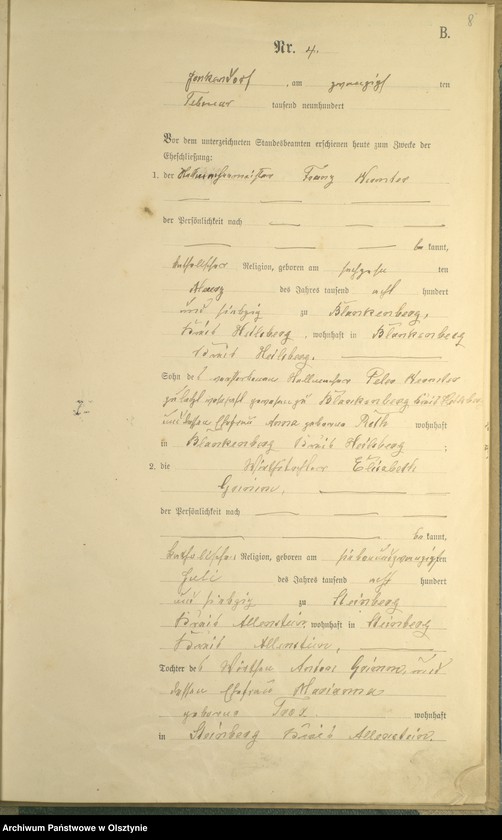 8
B.
Nr. 4.
Jonkendorf, am zwanzigsten
Februar tausend neunhundert
Vor dem unterzeichneten Standesbeamten erschienen heute zum Zwecke der
Eheschließung:
1. der Franz
der Persönlichkeit nach
be kannt,
katholischer Religion, geboren am sechzehnten
des Jahres tausend acht hundert
und siebzig zu Blankenberg,
Kreis Heilsberg, wohnhaft in Blankenberg
Kreis Heilsberg.
Sohn des verstorbenen
zuletzt wohnhaft gewesen zu Blankenberg Kreis Heilsberg
und dessen Ehefrau Anna geborene Roth wohnhaft
in Blankenberg Kreis Heilsberg;
2. die Wirthstochter Elisabeth
der Persönlichkeit nach
be kannt,
katholischer Religion, geboren am siebenundzwanzigsten
Juli des Jahres tausend acht hundert
und siebzig zu Steinberg
Kreis Allenstein, wohnhaft in Steinberg
Kreis Allenstein,
Tochter des Wirthen und
dessen Ehefrau Marianna
geborene wohnhaft
in Steinberg Kreis Allenstein.
Archiwum Państwowe w Olsztynie